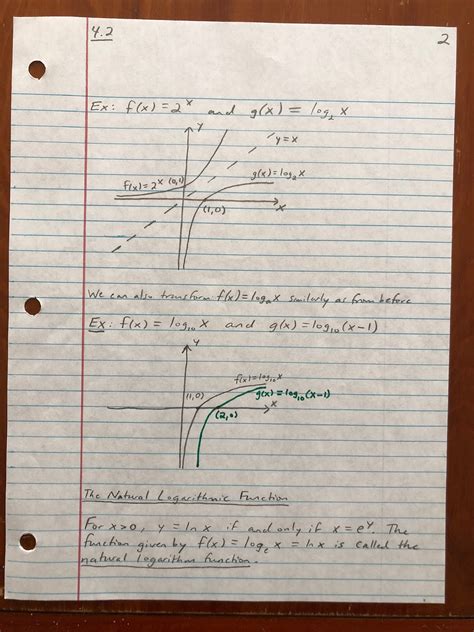 4.2
2
Ex: f(x) = 2^x and g(x) = log₂ x
y
y = x
f(x) = 2^x (0,1)
g(x) = log₂ x
(1,0)
x
We can also transform f(x) = logₐ x similarly as from before
Ex: f(x) = log₁₀ x and g(x) = log₁₀ (x-1)
y
f(x) = log₁₀ x
(1,0)
g(x) = log₁₀ (x-1)
x
(2,0)
The Natural Logarithmic Function
For x>0, y = ln x if and only if x = e^y. The
function given by f(x) = logₑ x = ln x is called the
natural logarithm function.